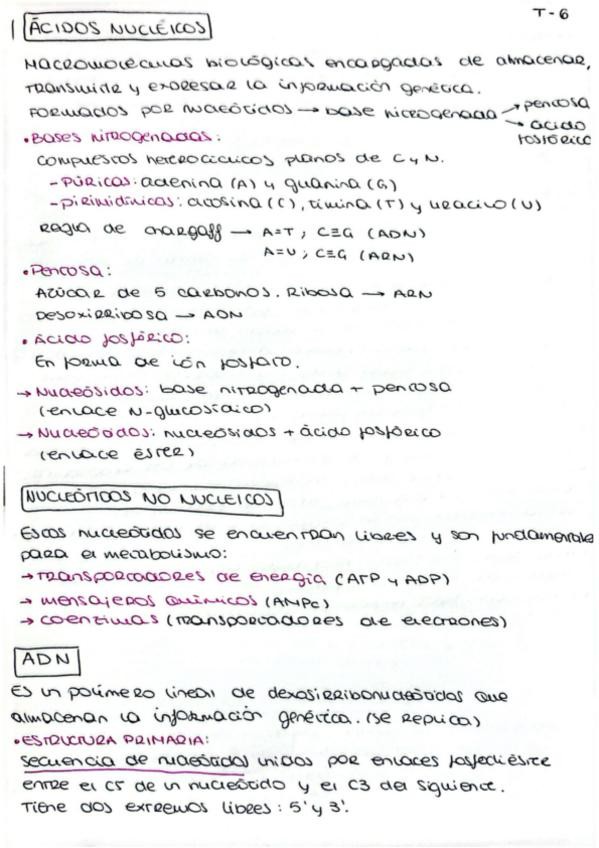 T-6
ÁCIDOS NUCLÉICOS
Macromoléculas biológicas encargadas de almacenar,
transmitir y expresar la información genética.
Formados por nucleótidos → base nitrogenada → pentosa
→ ácido
fosfórico
• Bases nitrogenadas:
Compuestos heterocíclicos planos de C y N.
- Púricas: adenina (A) y guanina (G)
- Pirimidínicas: citosina (C), timina (T) y uracilo (U)
Regla de Chargaff → A=T ; C≡G (ADN)
A=U ; C≡G (ARN)
• Pentosa:
Azúcar de 5 carbonos. Ribosa → ARN
Desoxirribosa → ADN
• Ácido fosfórico:
En forma de ión fosfato.
→ Nucleósidos: base nitrogenada + pentosa
(enlace N-glucosídico)
→ Nucleótidos: nucleósidos + ácido fosfórico
(enlace éster)
NUCLEÓTIDOS NO NUCLEICOS
Estos nucleótidos se encuentran libres y son fundamentales
para el metabolismo:
→ Transportadores de energía (ATP y ADP)
→ mensajeros químicos (AMPc)
→ coenzimas (transportadores de electrones)
ADN
Es un polímero lineal de dexosirribonucleótidos que
almacenan la información genética. (se replica)
• ESTRUCTURA PRIMARIA:
Secuencia de nucleótidos unidos por enlaces fosfodiéster
entre el C5 de un nucleótido y el C3 del siguiente.
Tiene dos extremos libres: 5' y 3'.